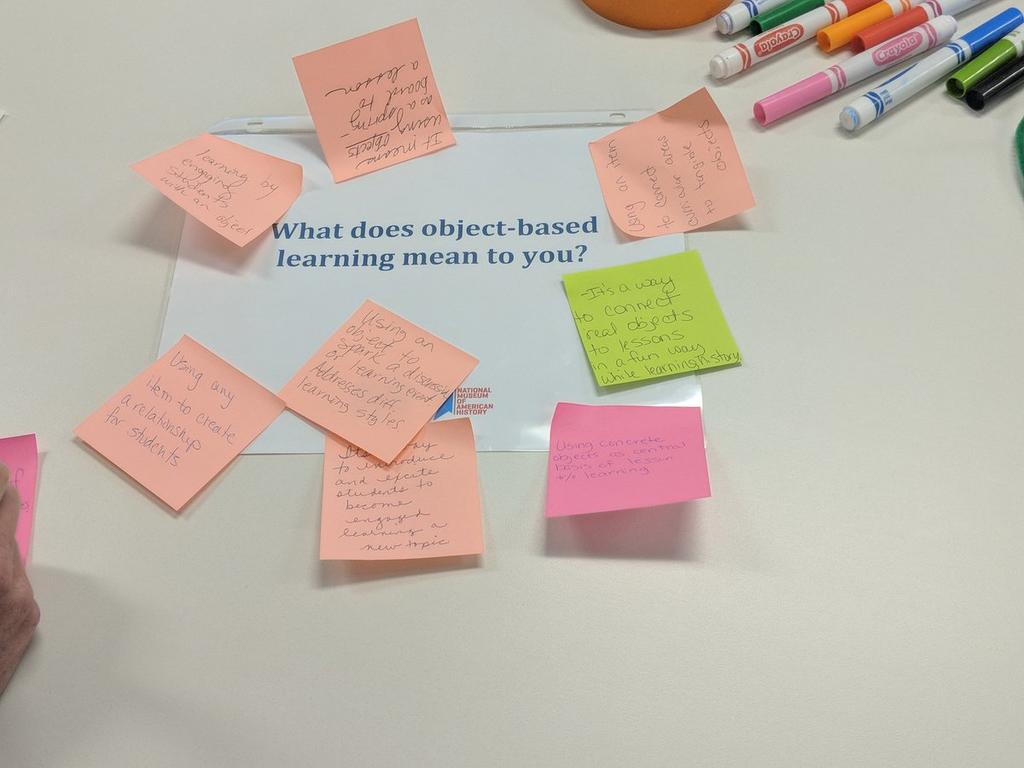 It means
using objects
as a spring-
board to
a lesson
learning by
engaging
students
with an object
Using an item
to connect
curricular areas
to tangible
objects
What does object-based
learning mean to you?
-It's a way
to connect
real objects
to lessons
in a fun way
while learning history.
Using an
object to
spark a discussion
or learning event
Addresses diff
learning styles
Using any
item to create
a relationship
for students
NATIONAL
MUSEUM
OF
AMERICAN
HISTORY
Using concrete
objects as central
basis of lesson
to introduce
and excite
students to
become
engaged
learning a
new topic
Crayola
Crayola